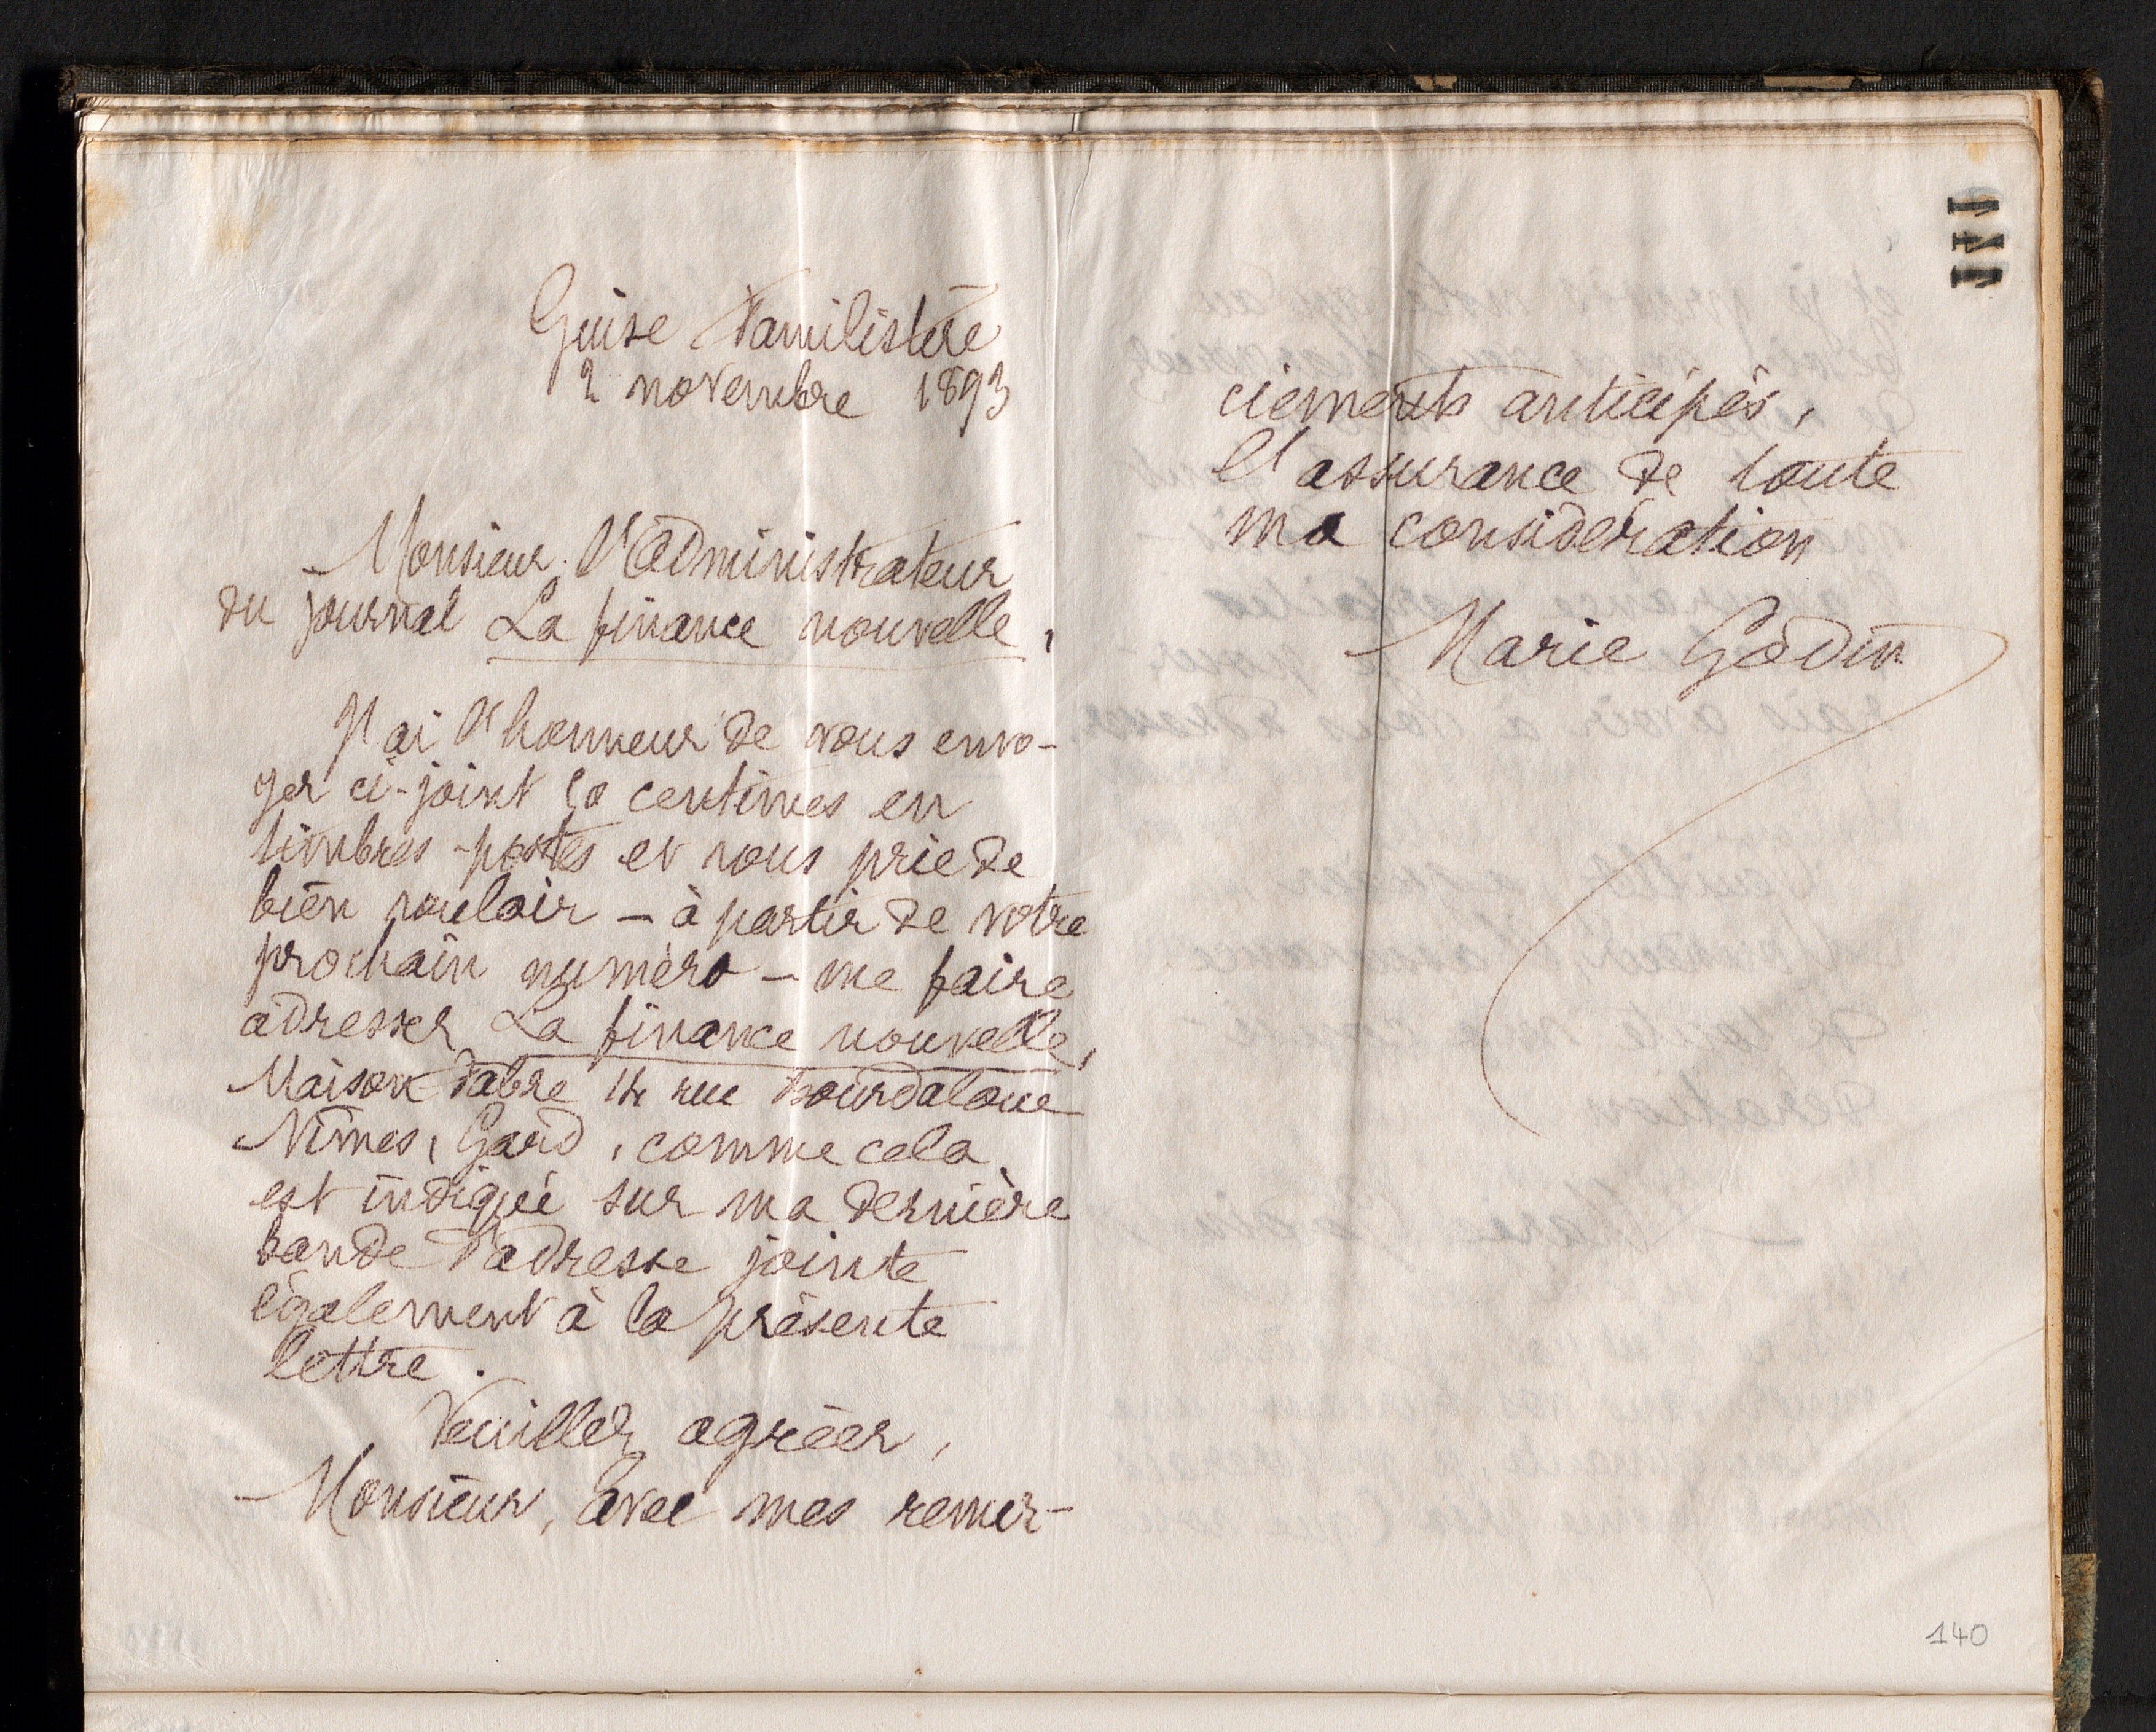 Guise Familistère
2 novembre 1893
Monsieur l'administrateur
du journal La finance nouvelle,
J'ai l'honneur de vous envo-
yer ci-joint 50 centimes en
timbres-postes et vous prie de
bien vouloir – à partir de votre
prochain numéro – me faire
adresser La finance nouvelle,
Maison Fabre 14 rue Bourdaloue
Nîmes, Gard, comme cela
est indiqué sur ma dernière
bande d'adresse jointe
également à la présente
lettre.
Veuillez agréer,
Monsieur, avec mes remer-
ciements anticipés,
l'assurance de toute
ma considération
Marie Godin
140